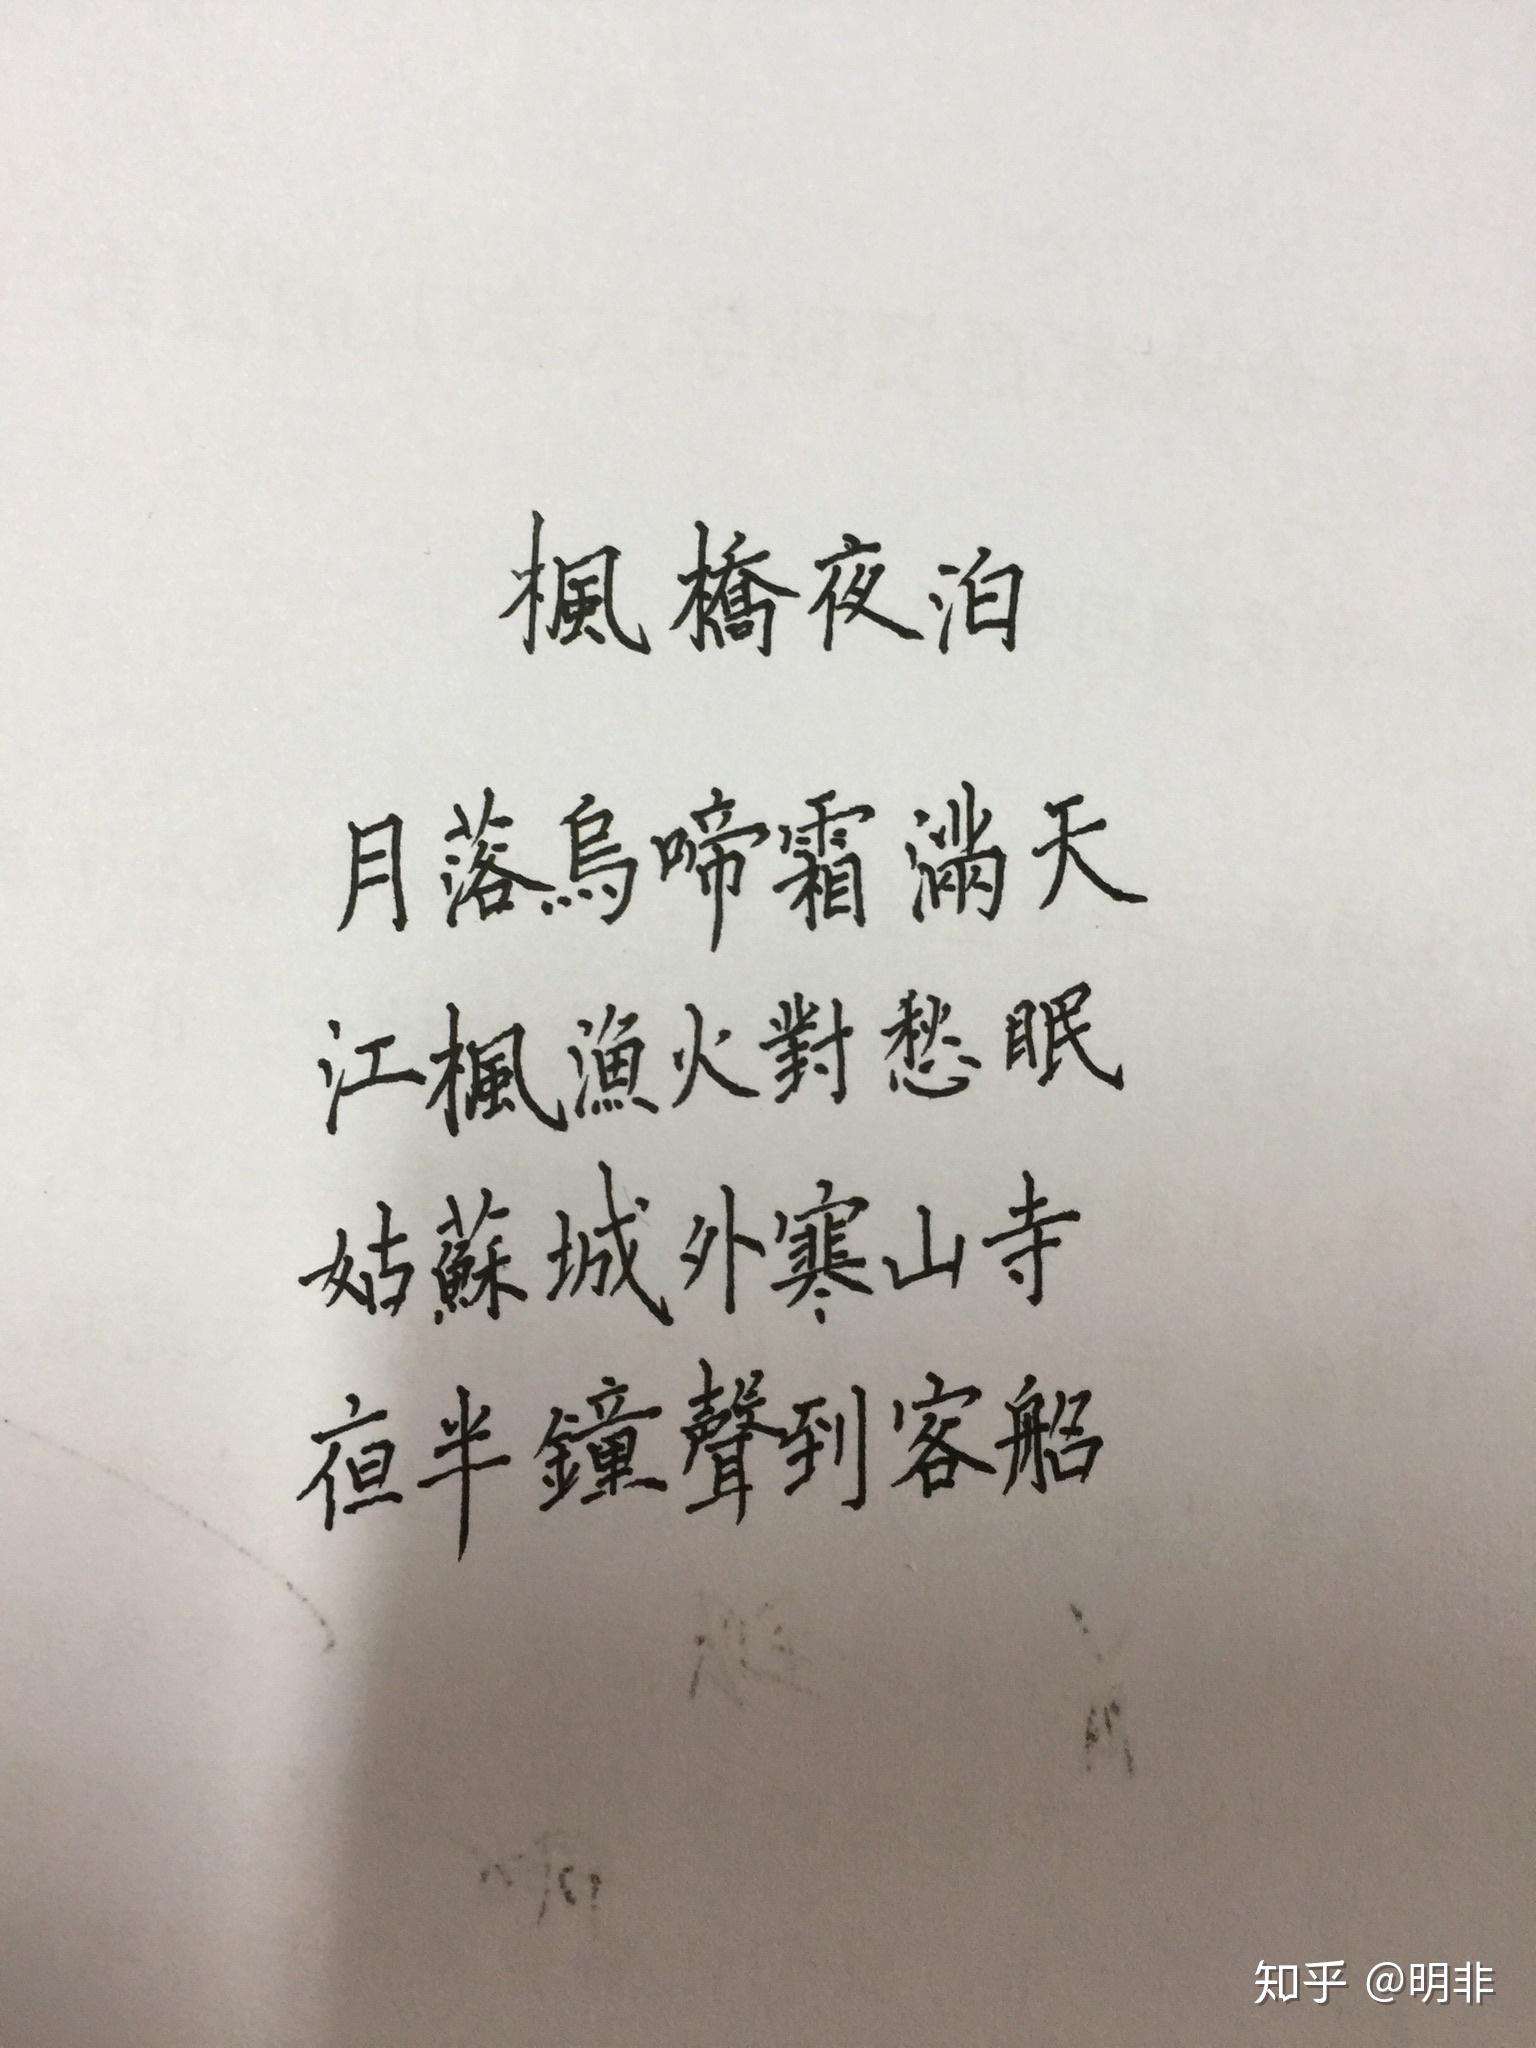 楓橋夜泊
月落烏啼霜滿天
江楓漁火對愁眠
姑蘇城外寒山寺
夜半鐘聲到客船
知乎 @明非